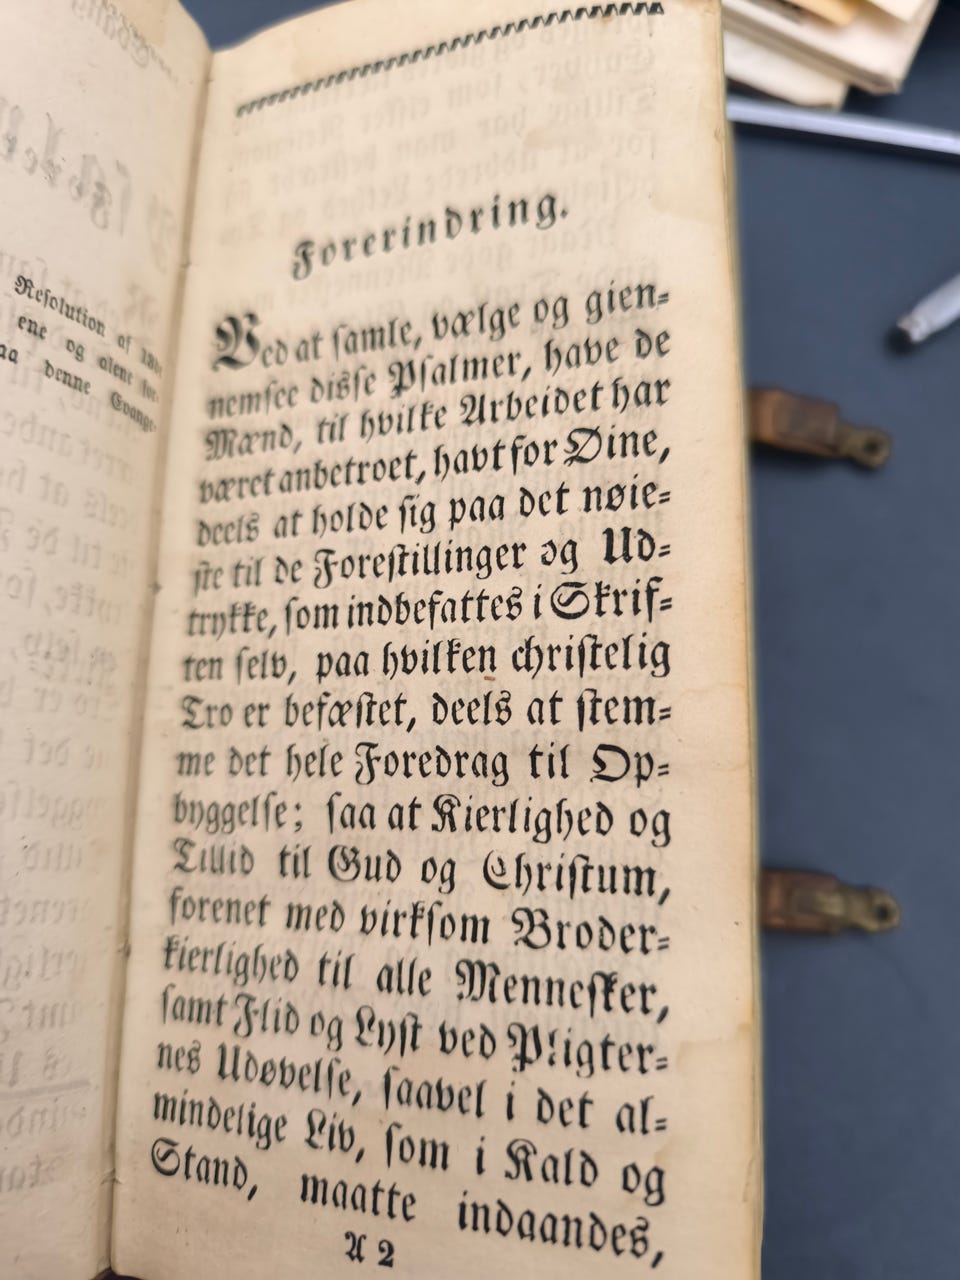 Resolution af
ene og alene for-
denne Evange-
Forerindring.
Ved at samle, vælge og gien-
nemsee disse Psalmer, have de
Mænd, til hvilke Arbeidet har
været anbetroet, havt for Øine,
deels at holde sig paa det nøie-
ste til de Forestillinger og Ud-
trykke, som indbefattes i Skrif-
ten selv, paa hvilken christelig
Tro er befæstet, deels at stem-
me det hele Foredrag til Op-
byggelse; saa at Kierlighed og
Tillid til Gud og Christum,
forenet med virksom Broder-
kierlighed til alle Mennesker,
samt Flid og Lyst ved Pligter-
nes Udøvelse, saavel i det al-
mindelige Liv, som i Kald og
Stand, maatte indaandes,
A 2